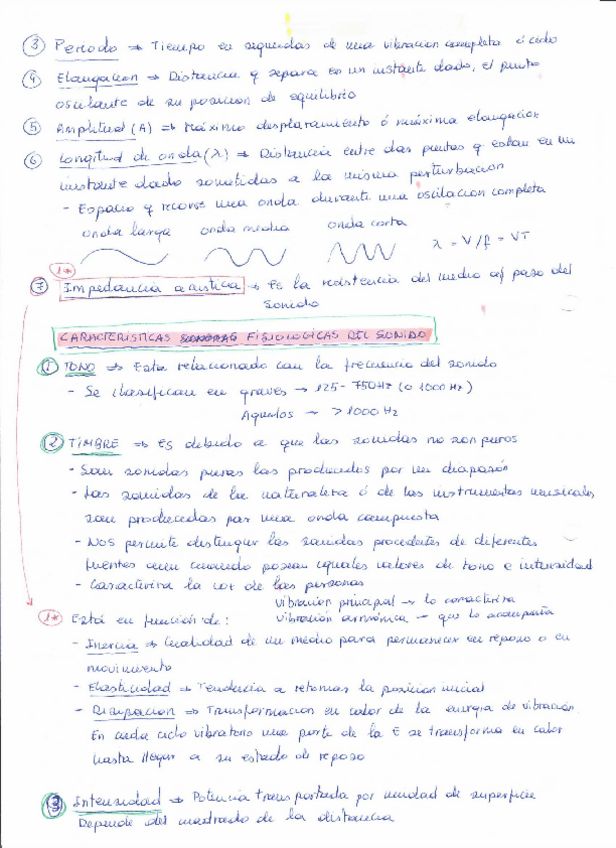 ③ Periodo => Tiempo en segundos de una vibracion completa ó ciclo
④ Elongacion => Distancia q separa en un instante dado, el punto
oscilante de su posicion de equilibrio
⑤ Amplitud (A) => Máximo desplazamiento ó máxima elongacion
⑥ Longitud de onda (λ) => Distancia entre dos puntos q estan en un
instante dado sometidas a la misma perturbacion
- Espacio q recorre una onda durante una oscilacion completa
onda larga onda media onda corta
λ = V/f = VT
1*
⑦ Impedancia acustica -> Es la resistencia del medio al paso del
sonido
CARACTERISTICAS SONORAS FISIOLOGICAS DEL SONIDO
① TONO => Esta relacionado con la frecuencia del sonido
- Se clasifican en graves -> 125-750Hz (o 1000 Hz)
Agudos -> >1000 Hz
② TIMBRE => Es debido a que los sonidos no son puros
- Son sonidos puros los producidos por un diapasón
- Los sonidos de la naturaleza ó de los instrumentos musicales
son producidos por una onda compuesta
- Nos permite distinguir los sonidos procedentes de diferentes
fuentes aun cuando posean iguales valores de tono e intensidad
- Caracteriza la voz de las personas
vibracion principal -> lo caracteriza
1* Está en función de: vibración armónica -> que lo acompaña
- Inercia => Cualidad de un medio para permanecer en reposo o en
movimiento
- Elasticidad => Tendencia a retomar la posicion inicial
- Disipacion => Transformacion en calor de la energia de vibración
En cada ciclo vibratorio una parte de la E se transforma en calor
hasta llegar a su estado de reposo
③ Intensidad => Potencia transportada por unidad de superficie
Depende del cuadrado de la distancia